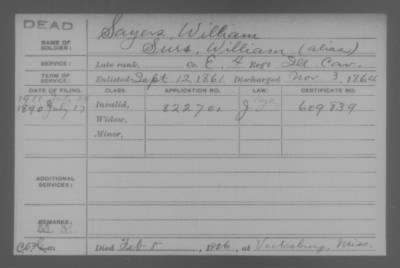 DEAD
NAME OF SOLDIER: Sayers, William
Surs, William (alias)
SERVICE: Late rank, Co. E, 4 Reg't Ill Cav.
TERM OF SERVICE: Enlisted Sept 12, 1861 Discharged Nov 3, 1864
DATE OF FILING. CLASS. APPLICATION NO. LAW. CERTIFICATE NO.
1911
1890 July 17 Invalid, 822701 J 609839
Widow,
Minor,
ADDITIONAL SERVICES:
REMARKS:
Died Feb 5, 1926, at Vicksburg, Miss.